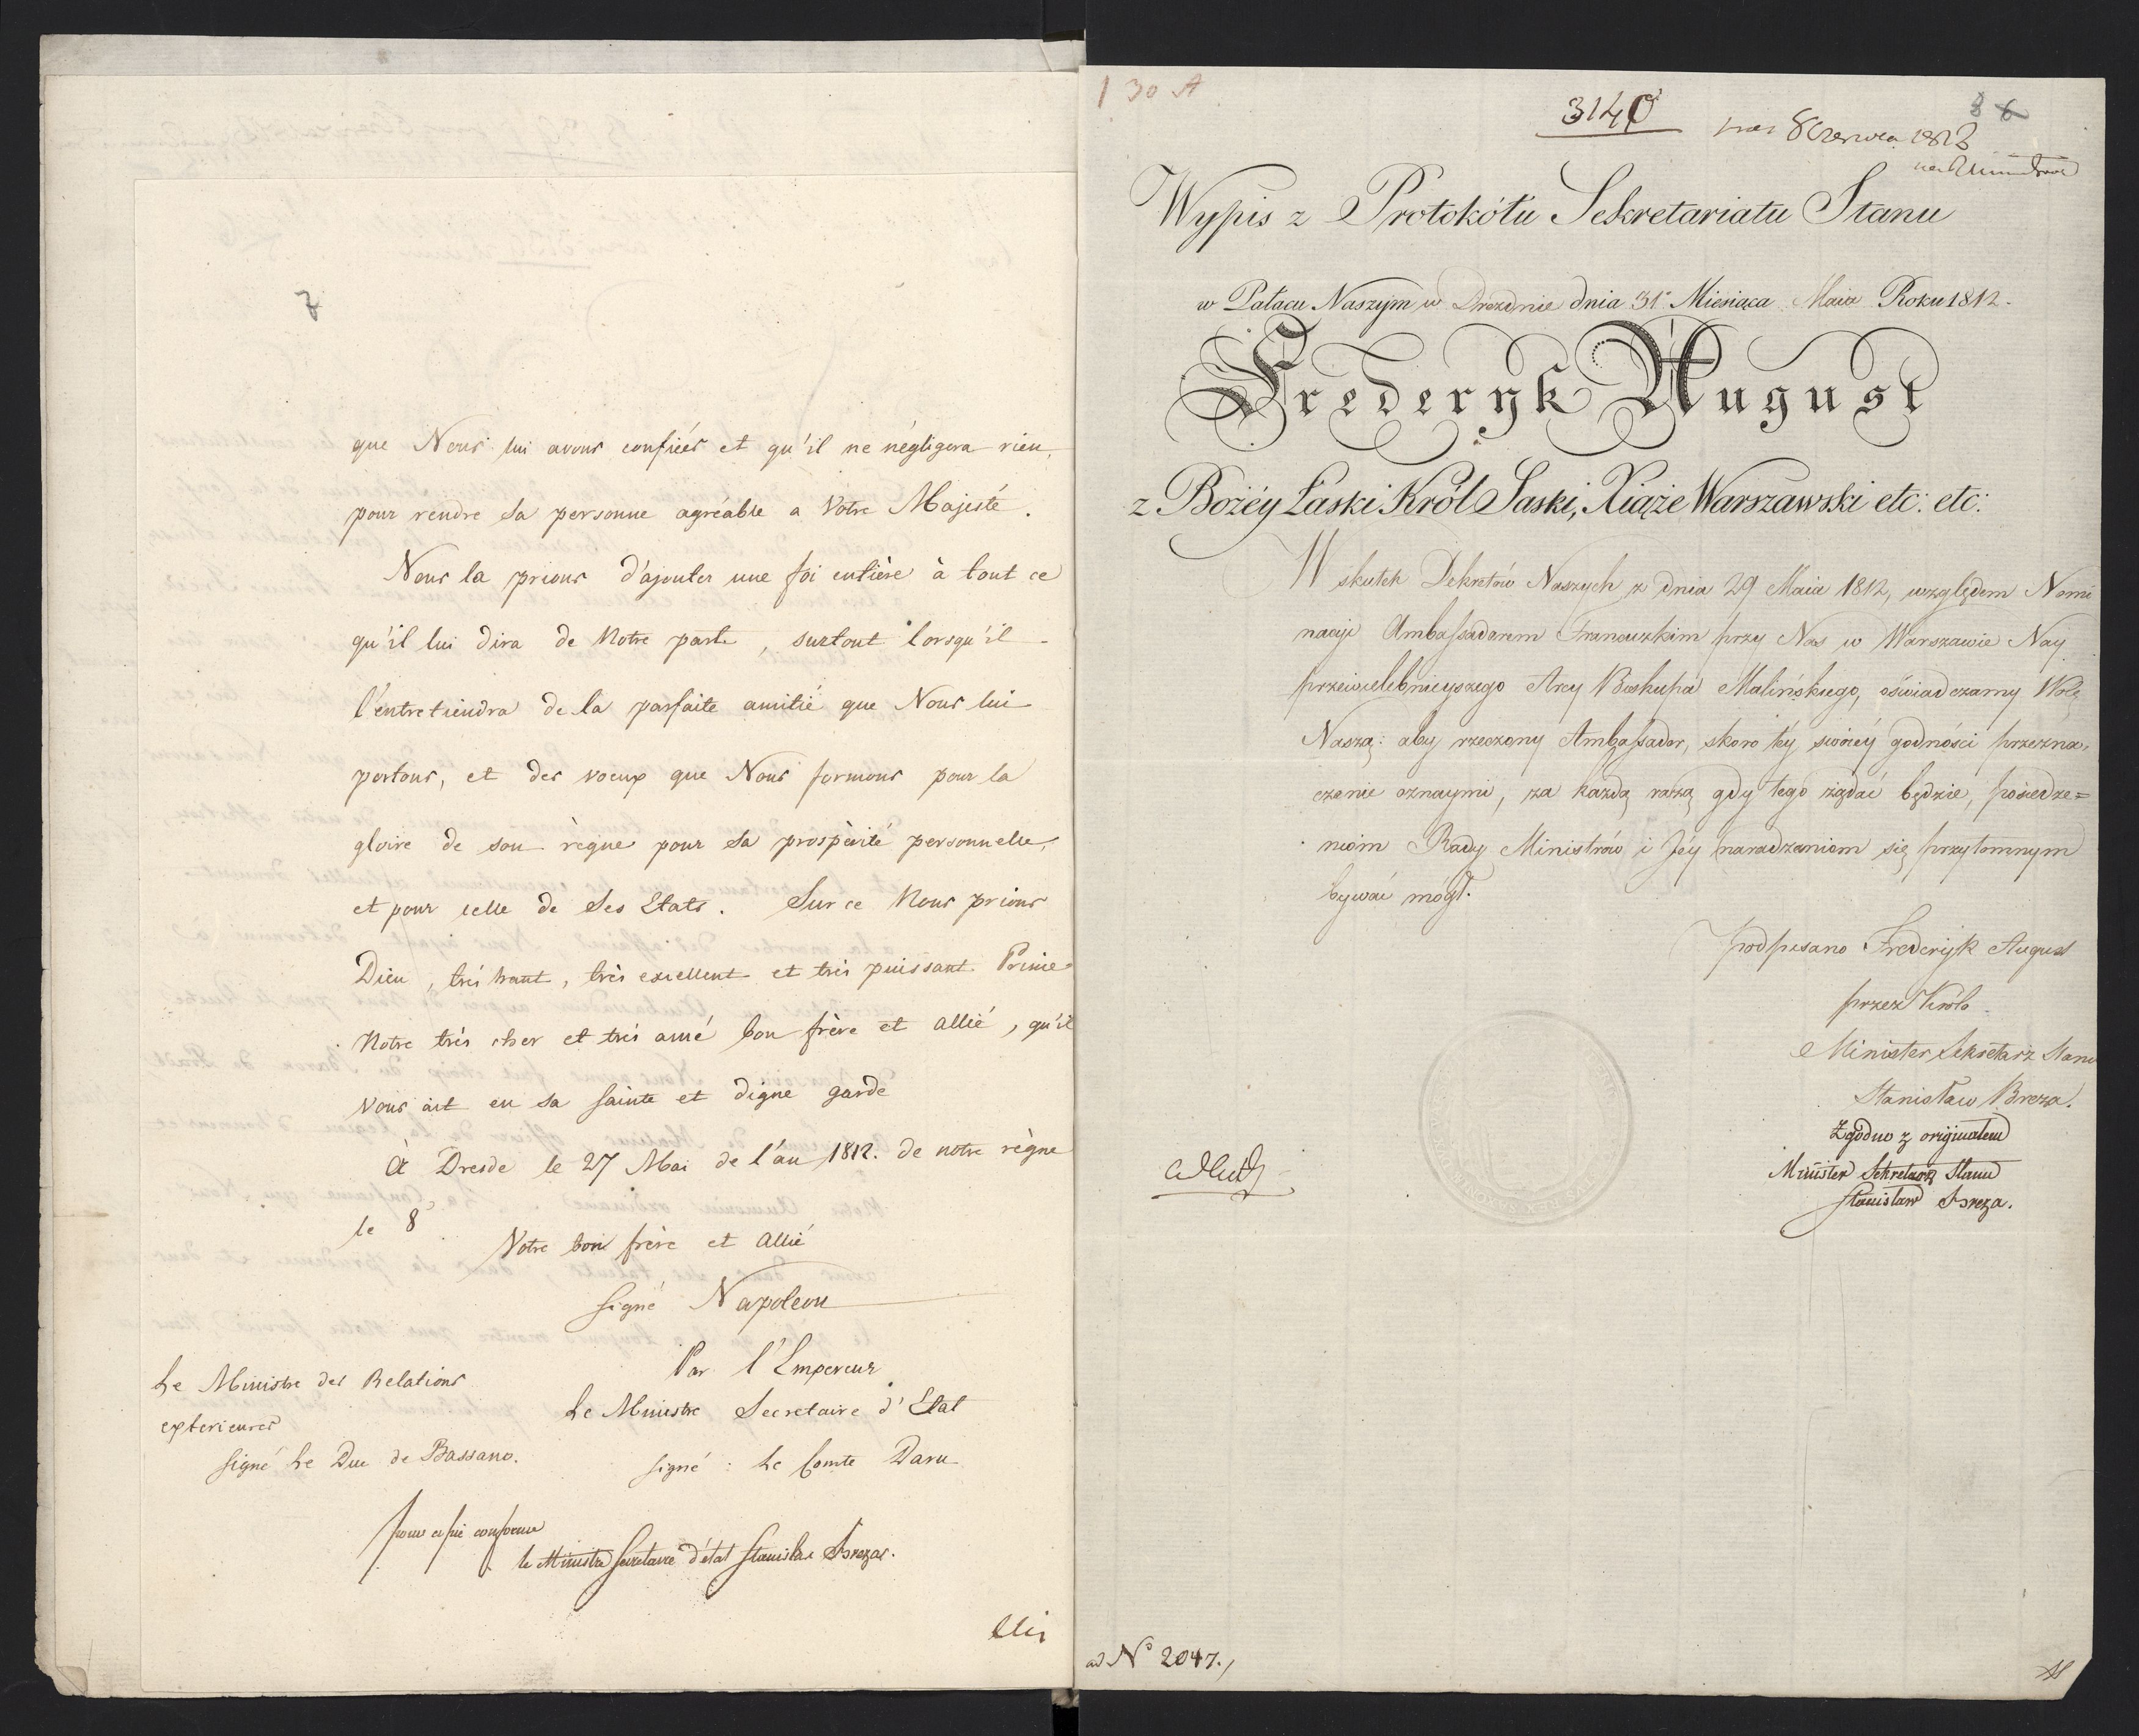 7
que Nous lui avons confiées et qu'il ne négligera rien
pour rendre sa personne agréable a Votre Majesté.
Nous la prions d'ajouter une foi entière à tout ce
qu'il lui dira de Notre part, surtout lorsqu'il
l'entretiendra de la parfaite amitié que Nous lui
portons, et des voeux que Nous formons pour la
gloire de son règne pour sa prospérité personnelle,
et pour celle de Ses Etats. Sur ce Nous prions
Dieu, très haut, très excellent et très puissant Prince
Notre très cher et très amé bon frère et allié, qu'il
Vous ait en sa sainte et digne garde
À Dresde le 27 Mai de l'an 1812. de notre règne
le 8
Votre bon frère et allié
signé Napoleon
Par l'Empereur
Le Ministre Secretaire d'Etat
signé : le Comte Daru
Le Ministre des Relations
exterieures
signé Le Duc de Bassano.
pour copie conforme
le Ministre Secretaire d'état Stanislas Breza.
130 A
3140
8 Czerwca 1812
8 6
Wypis z Protokółu Sekretariatu Stanu
w Pałacu Naszym w Dreznie dnia 31 Miesiąca Maia Roku 1812.
Frederyk August
z Bożéy Łaski Król Saski, Xiąże Warszawski etc: etc:
W skutek Dekretów Naszych z dnia 29 Maia 1812, względem Nomi
nacyi Ambassadorem Francuzkim przy Nas w Warszawie Nay
przewielebnieyszego Arcy Biskupa Malińskiego, oświadczamy Wolę
Naszą: aby rzeczony Ambassador, skoro téy swoiéy godności przezna,
czenie oznaymi, za każdą razą gdy tego żądać będzie, posiedze=
niom Rady Ministrów i Jéy naradzeniom się przytomnym
bywać mógł.
podpisano Frederyk August
przez Króla
Minister Sekretarz Stanu
Stanisław Breza.
Zgodno z originałem
Minister Sekretarz Stanu
Stanisław Breza.
ad No 2047.